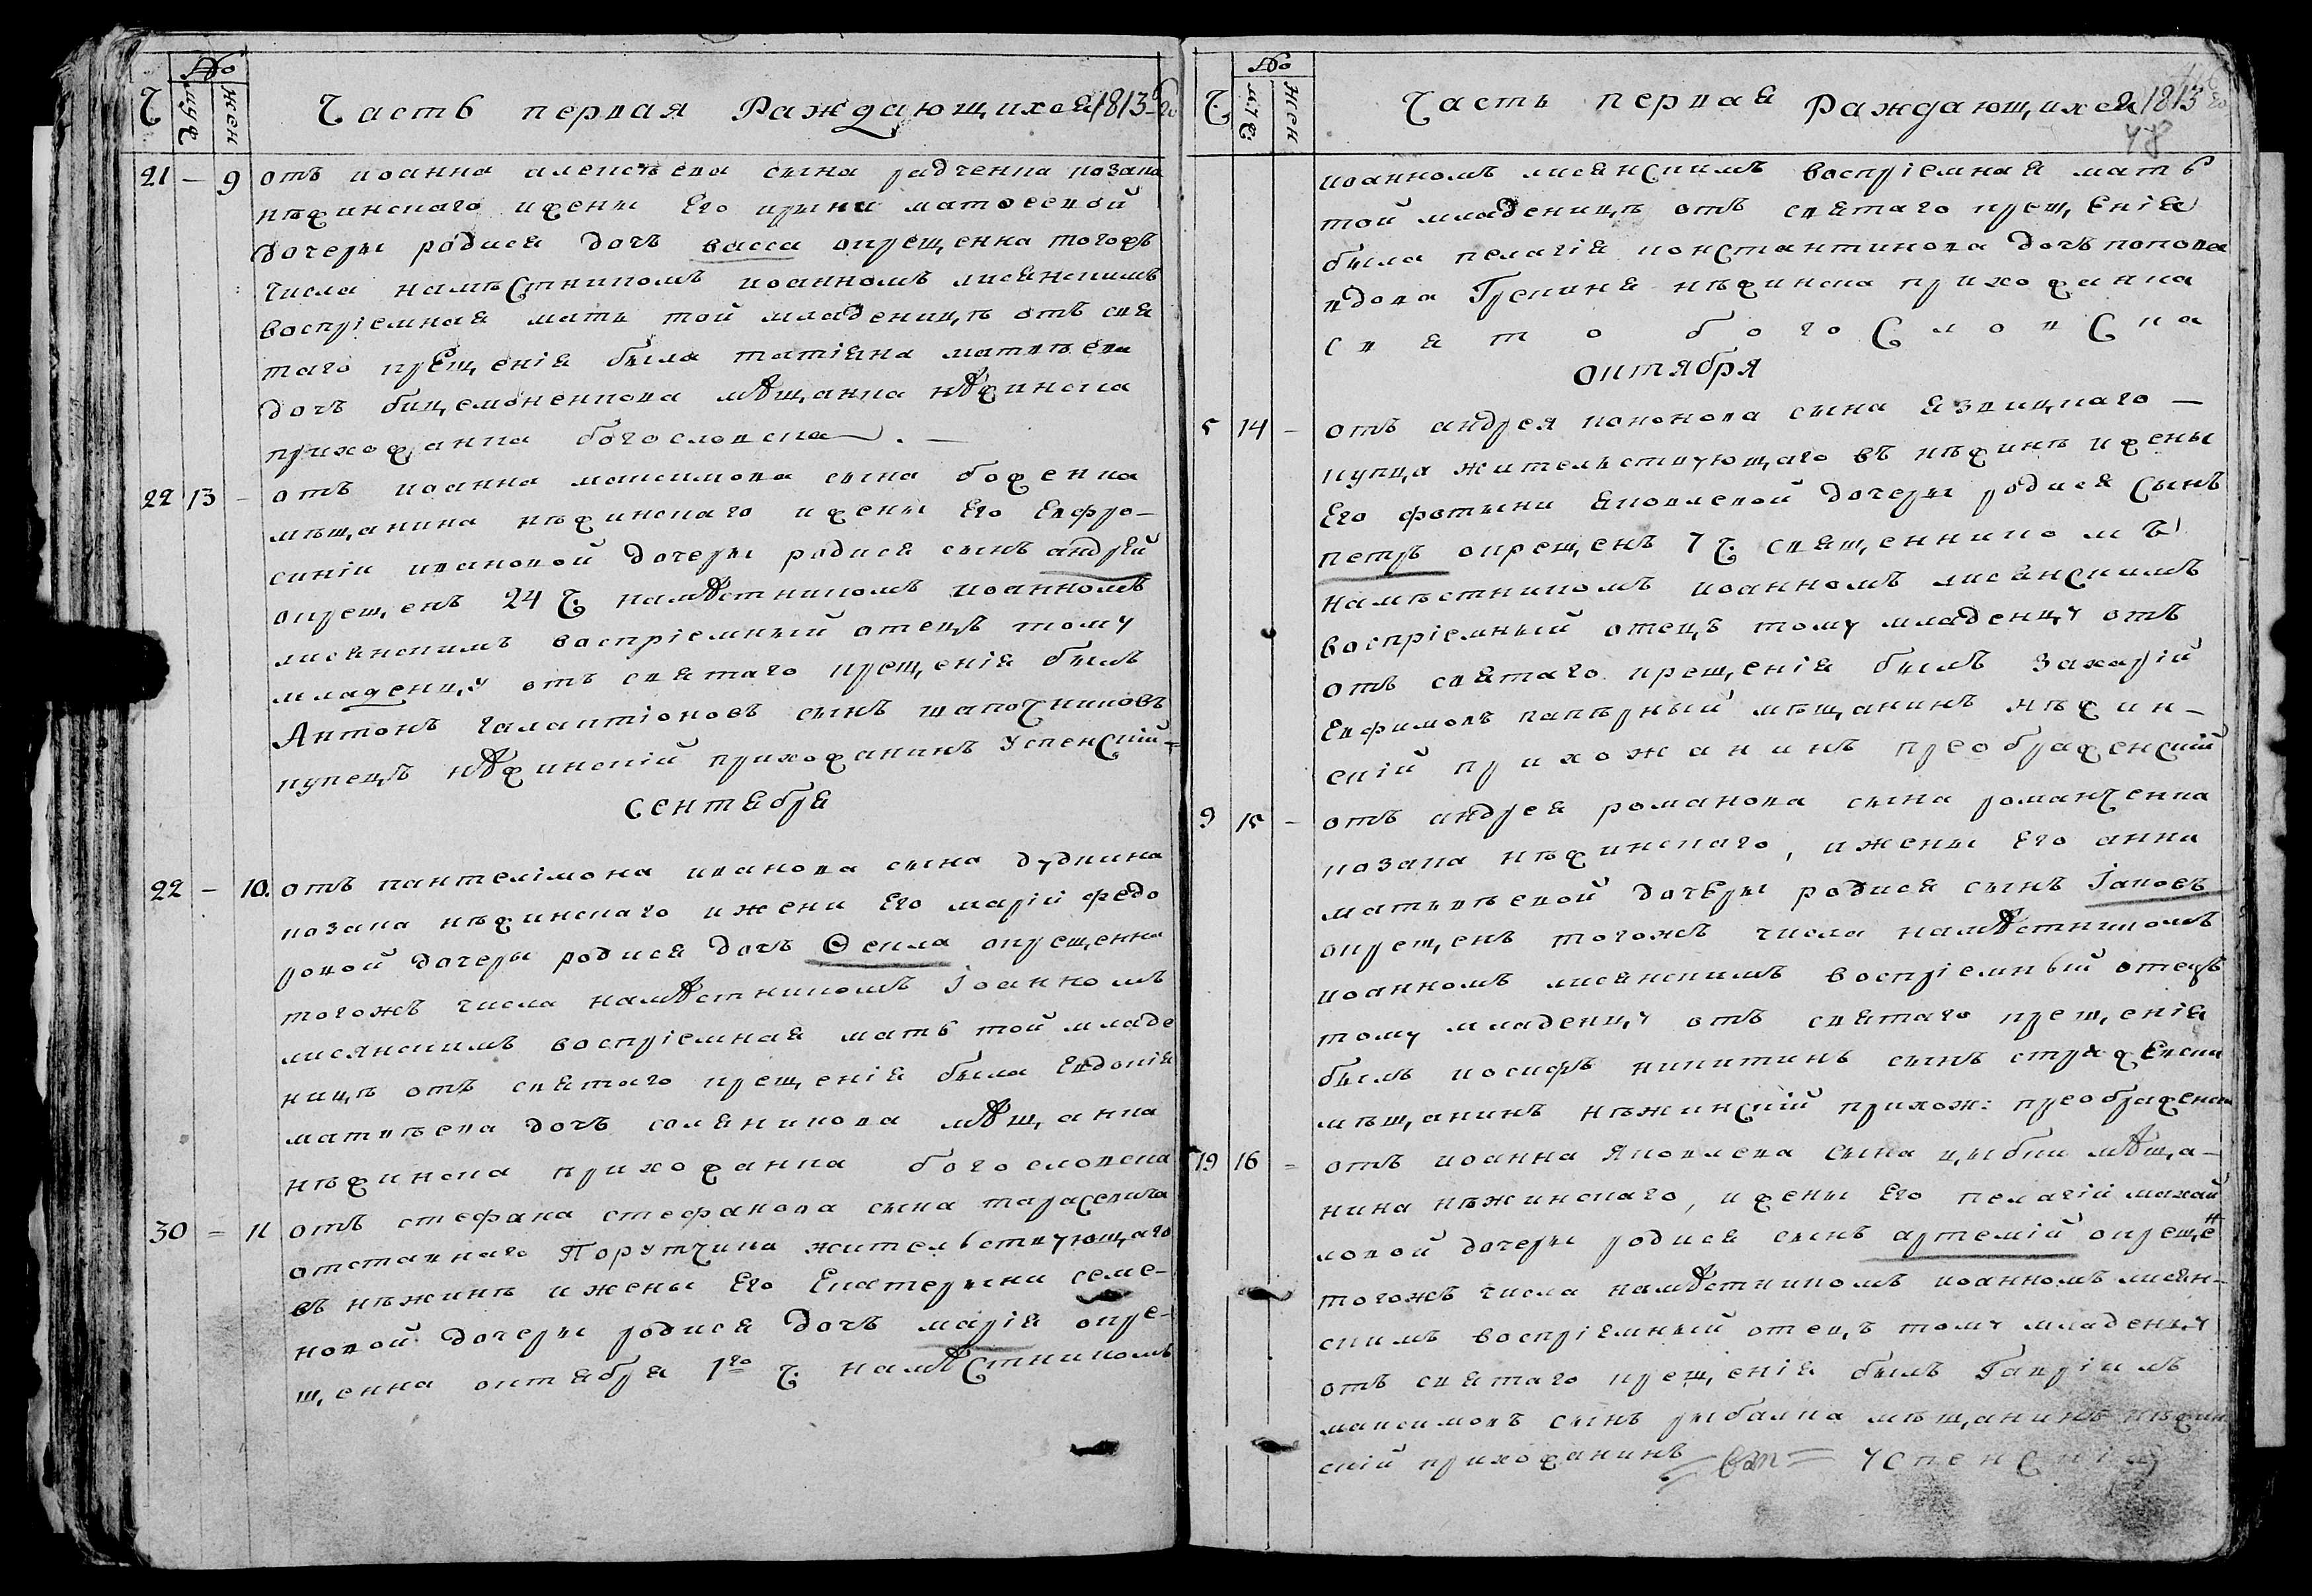 №
Ч муч жен Часть первая Раждающихся 1813 го
21 – 9 отъ иоанна алексѣева сина радченка козака
нѣжинскаго ижены Его ирини матвеевой
дочеры родися дочъ васса окрещенна тогожъ
числа намѣстникомъ иоанномъ лисянскимъ
воспріемная мать той младеницѣ отъ свя
таго крещенія была татіяна матвѣева
дочъ мѣщанка нѣжинска
прихожанка богословска
22 13 – отъ иоанна максимова сына боженка
мѣщанина нѣжинскаго ижены Его Евфро–
синіи ивановой дочеры родися сынъ андрѣй
окрещенъ 24 Ч. намѣстникомъ иоанномъ
лисянскимъ воспріемный отецъ тому
младенцу отъ святаго крещенія былъ
Антонъ галактіоновъ сынъ шапочниковъ
купецъ нѣжинскій прихожанинъ Успенскій
Сентября
22 – 10. отъ пантелімона иванова сына дудкина
козака нѣжинскаго ижени Его маріи федо
ровой дочеры родися дочъ Ѳекла окрещенна
тогожъ числа намѣстникомъ Іоанномъ
лисянскимъ воспріемная мать той младе
ницѣ отъ святаго крещенія была Евдокія
матвѣева дочъ соляникова мѣщанка
нѣжинска прихожанка богословска
30 – 11 отъ стефана стефанова сына тарасевича
отставнаго Порутчика жительствующаго
въ нѣжинѣ ижены Его Екатерыни семе–
новой дочеры родися дочъ марія окре–
щенна октября 1го Ч. намѣстникомъ
№
Ч муч Жен Часть первая Раждающихся 1813 го
48
иоанномъ лисянскимъ воспріемная мать
той младеницѣ отъ святаго крещенія
была пелагія константинова дочъ попова
вдова Грекиня нѣжинска прихожанка
свято богословска
октября
5 14 – отъ андрея кононова сына язвицкаго –
купца жительствующаго въ нѣжинѣ ижены
Его фотыни яковлевой дочеры родися Сынъ
петръ окрещенъ 7 Ч. священникомъ
намѣстникомъ иоанномъ лисянскимъ
воспріемный отецъ тому младенцу отъ
отъ святаго крещенія былъ захарій
Евфимовъ мѣщанинъ нѣжин–
скій прихожанинъ преображенскій
9 15 – отъ андрея романова сына романченка
козака нѣжинскаго, ижены Его анни
матвѣевой дочеры родися сынъ Іаковъ
окрещенъ тогожъ числа намѣстникомъ
иоанномъ лисянскимъ воспріемный отецъ
тому младенцу отъ святаго крещенія
былъ иосифъ никитинъ сынъ
мѣщанинъ нѣжинскій прихож: преображенск
19 16 = отъ иоанна Яковлева сына цыбки мѣща–
нина нѣжинскаго, ижены Его пелагіи михай
ловой дочеры родися сынъ артемій окрещен
тогожъ числа намѣстникомъ иоанномъ лисян–
скимъ воспріемный отецъ тому младенцу
отъ святаго крещенія былъ Гавріилъ
максимовъ сынъ рыбалка мѣщанинъ нѣжин
скій прихожанинъ успенскій